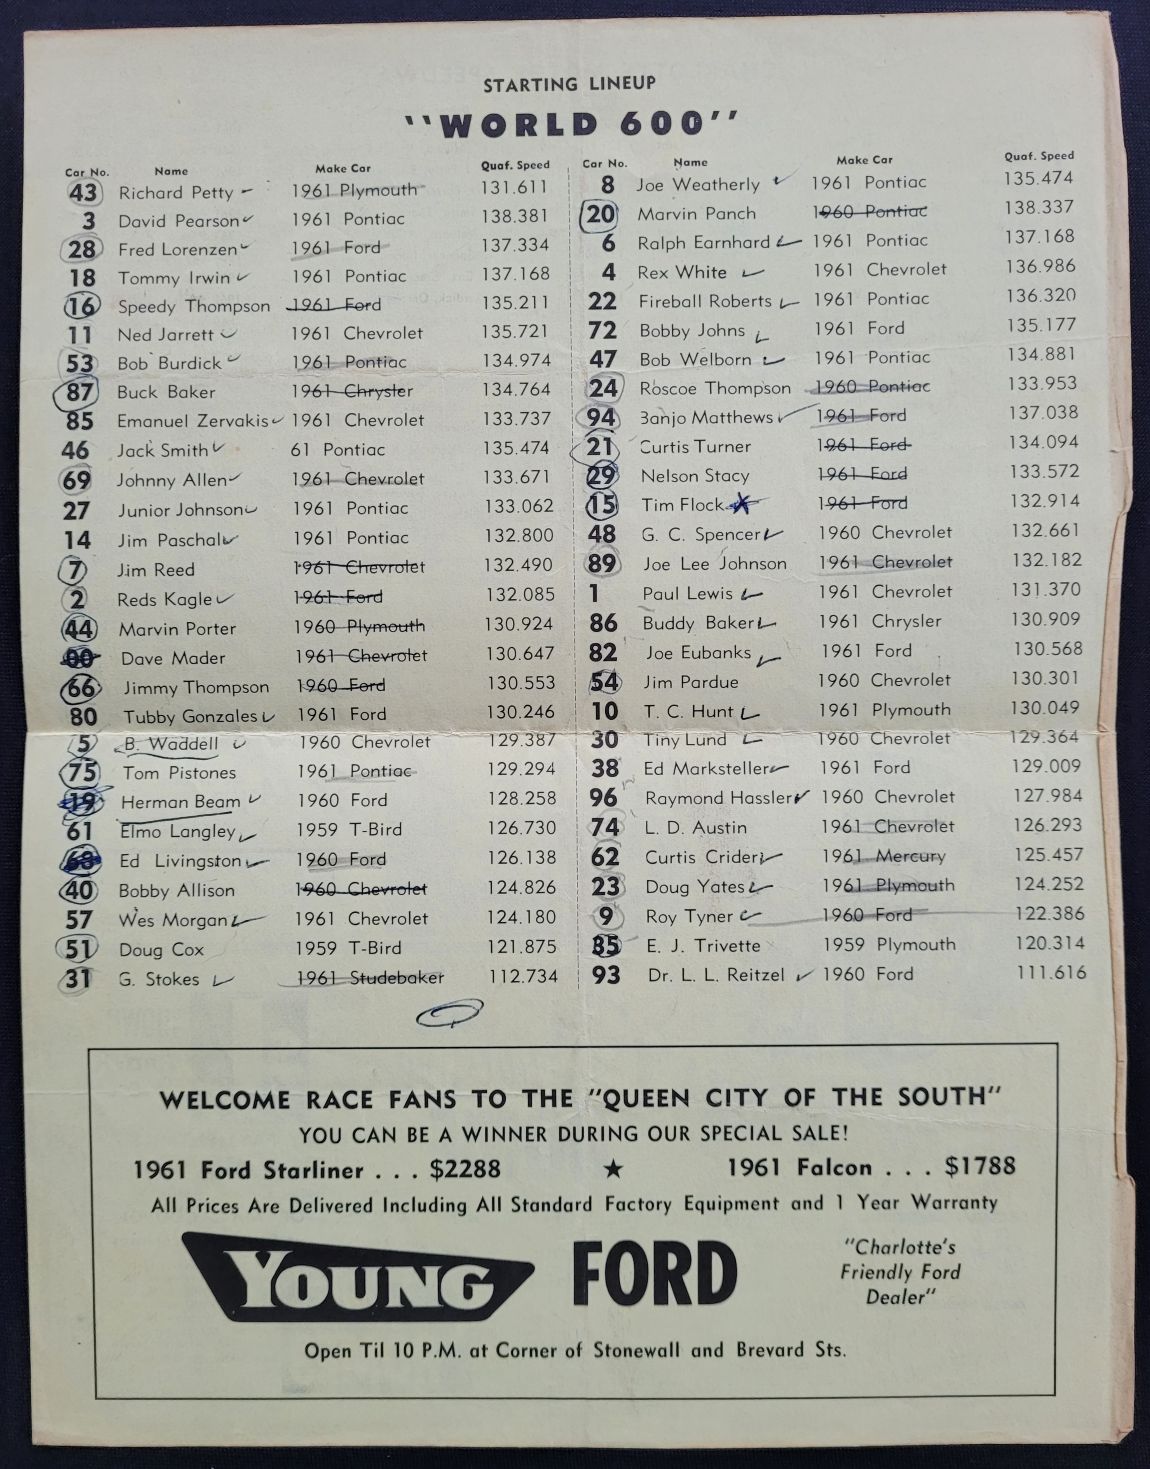 STARTING LINEUP
"WORLD 600"
Car No. Name Make Car Quaf. Speed Car No. Name Make Car Quaf. Speed
43 Richard Petty 1961 Plymouth 131.611 8 Joe Weatherly 1961 Pontiac 135.474
3 David Pearson 1961 Pontiac 138.381 20 Marvin Panch 1960 Pontiac 138.337
28 Fred Lorenzen 1961 Ford 137.334 6 Ralph Earnhard 1961 Pontiac 137.168
18 Tommy Irwin 1961 Pontiac 137.168 4 Rex White 1961 Chevrolet 136.986
16 Speedy Thompson 1961 Ford 135.211 22 Fireball Roberts 1961 Pontiac 136.320
11 Ned Jarrett 1961 Chevrolet 135.721 72 Bobby Johns 1961 Ford 135.177
53 Bob Burdick 1961 Pontiac 134.974 47 Bob Welborn 1961 Pontiac 134.881
87 Buck Baker 1961 Chrysler 134.764 24 Roscoe Thompson 1960 Pontiac 133.953
85 Emanuel Zervakis 1961 Chevrolet 133.737 94 Banjo Matthews 1961 Ford 137.038
46 Jack Smith 61 Pontiac 135.474 21 Curtis Turner 1961 Ford 134.094
69 Johnny Allen 1961 Chevrolet 133.671 29 Nelson Stacy 1961 Ford 133.572
27 Junior Johnson 1961 Pontiac 133.062 15 Tim Flock 1961 Ford 132.914
14 Jim Paschal 1961 Pontiac 132.800 48 G. C. Spencer 1960 Chevrolet 132.661
7 Jim Reed 1961 Chevrolet 132.490 89 Joe Lee Johnson 1961 Chevrolet 132.182
2 Reds Kagle 1961 Ford 132.085 1 Paul Lewis 1961 Chevrolet 131.370
44 Marvin Porter 1960 Plymouth 130.924 86 Buddy Baker 1961 Chrysler 130.909
00 Dave Mader 1961 Chevrolet 130.647 82 Joe Eubanks 1961 Ford 130.568
66 Jimmy Thompson 1960 Ford 130.553 54 Jim Pardue 1960 Chevrolet 130.301
80 Tubby Gonzales 1961 Ford 130.246 10 T. C. Hunt 1961 Plymouth 130.049
5 B. Waddell 1960 Chevrolet 129.387 30 Tiny Lund 1960 Chevrolet 129.364
75 Tom Pistones 1961 Pontiac 129.294 38 Ed Marksteller 1961 Ford 129.009
19 Herman Beam 1960 Ford 128.258 96 Raymond Hassler 1960 Chevrolet 127.984
61 Elmo Langley 1959 T-Bird 126.730 74 L. D. Austin 1961 Chevrolet 126.293
68 Ed Livingston 1960 Ford 126.138 62 Curtis Crider 1961 Mercury 125.457
40 Bobby Allison 1960 Chevrolet 124.826 23 Doug Yates 1961 Plymouth 124.252
57 Wes Morgan 1961 Chevrolet 124.180 9 Roy Tyner 1960 Ford 122.386
51 Doug Cox 1959 T-Bird 121.875 35 E. J. Trivette 1959 Plymouth 120.314
31 G. Stokes 1961 Studebaker 112.734 93 Dr. L. L. Reitzel 1960 Ford 111.616
WELCOME RACE FANS TO THE "QUEEN CITY OF THE SOUTH"
YOU CAN BE A WINNER DURING OUR SPECIAL SALE!
1961 Ford Starliner . . . $2288 ★ 1961 Falcon . . . $1788
All Prices Are Delivered Including All Standard Factory Equipment and 1 Year Warranty
YOUNG FORD
"Charlotte's
Friendly Ford
Dealer"
Open Til 10 P.M. at Corner of Stonewall and Brevard Sts.